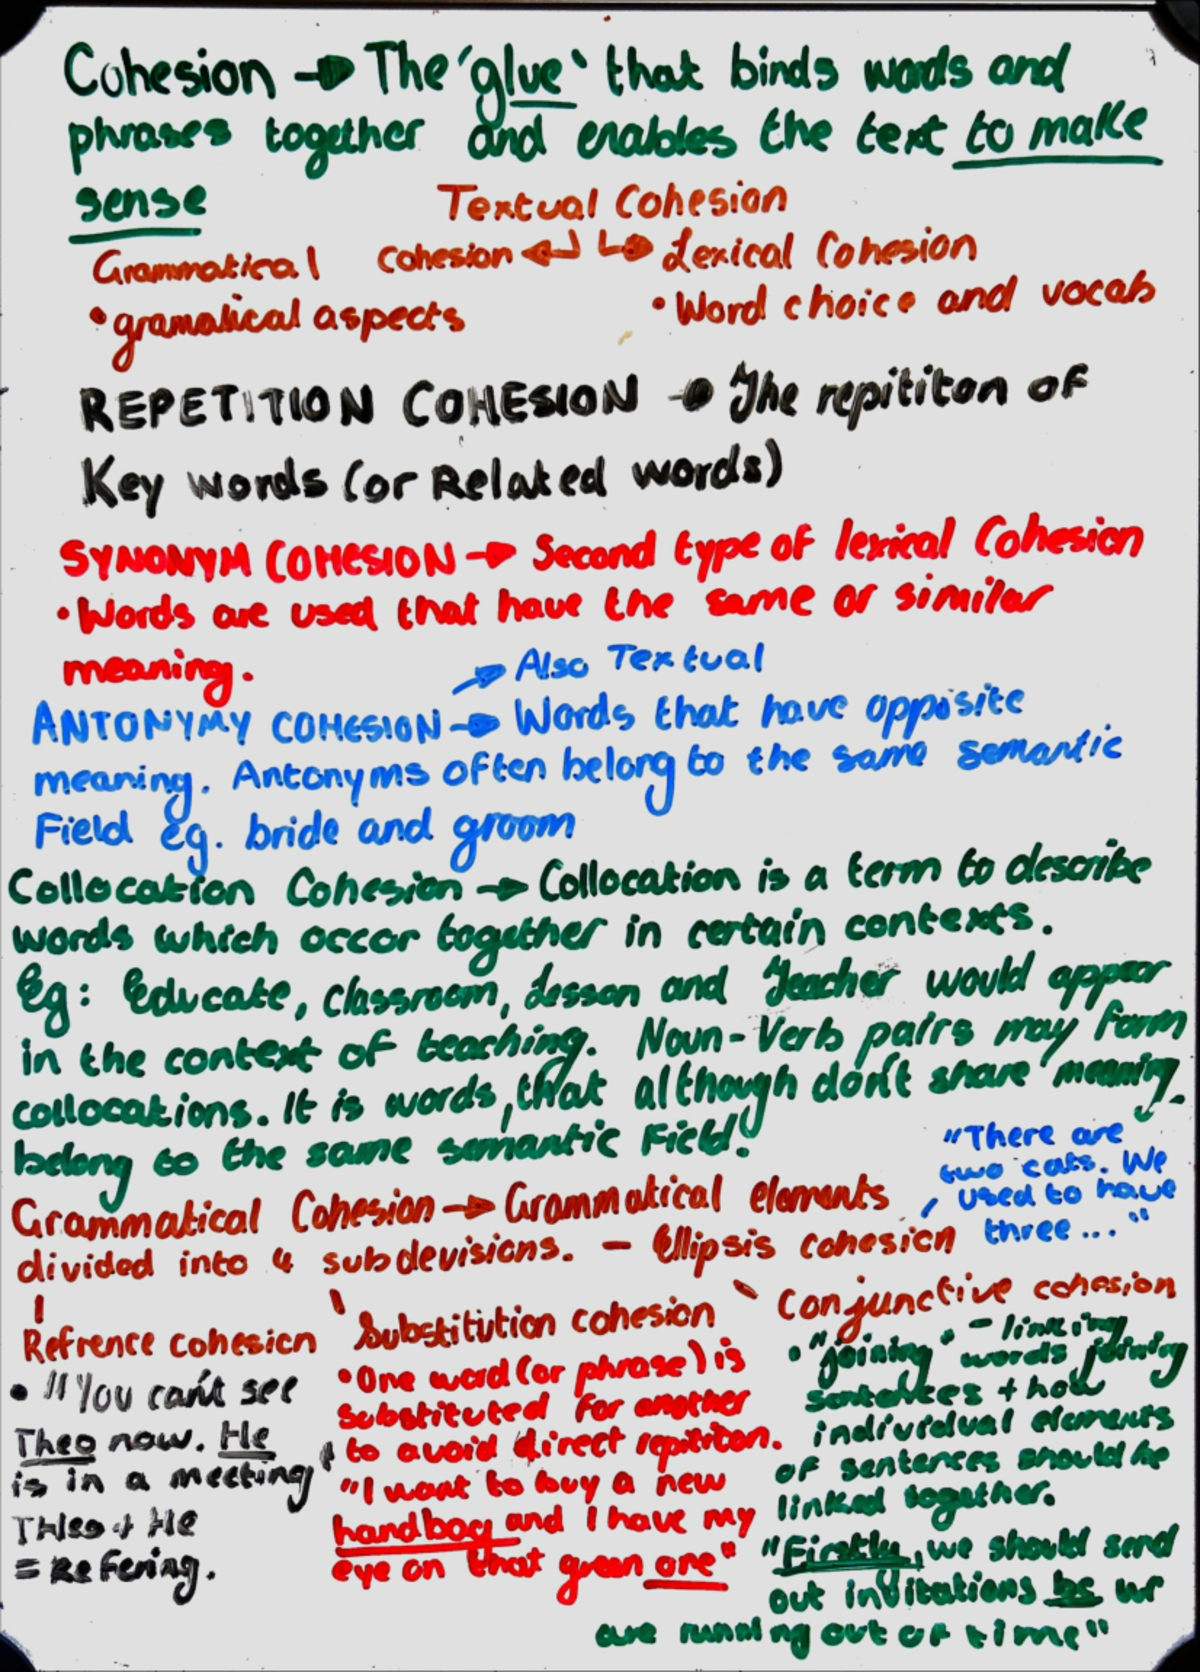 Cohesion → The 'glue' that binds words and
phrases together and enables the text to make
sense
Textual Cohesion
Grammatical Cohesion ← → Lexical Cohesion
• gramatical aspects
• Word choice and vocab
REPETITION COHESION → The repititon of
Key words (or Related words)
SYNONYM COHESION → Second type of lexical Cohesion
• Words are used that have the same or similar
meaning.
→ Also Textual
ANTONYMY COHESION → Words that have opposite
meaning. Antonyms often belong to the same semantic
Field eg. bride and groom
Collocation Cohesion → Collocation is a term to describe
words which occor together in certain contexts.
Eg: Educate, classroom, Lesson and Teacher would appear
in the context of teaching. Noun-Verb pairs may form
collocations. It is words, that although don't share meaning,
belong to the same semantic Field.
Grammatical Cohesion → Grammatical elements
divided into 4 subdevisions. - Ellipsis cohesion
"There are
two cats. We
used to have
three..."
Refrence cohesion
• "You can't see
Theo now. He
is in a meeting"
Theo + He
= Refering.
Substitution cohesion
• One word (or phrase) is
substituted for another
to avoid direct repititon.
"I want to buy a new
handbag and I have my
eye on that green one"
Conjunctive cohesion
• "joining" - linking
words joining
sentences + how
individual elements
of sentences should be
linked together.
"Firstly, we should send
out invitations bc we
are running out of time"